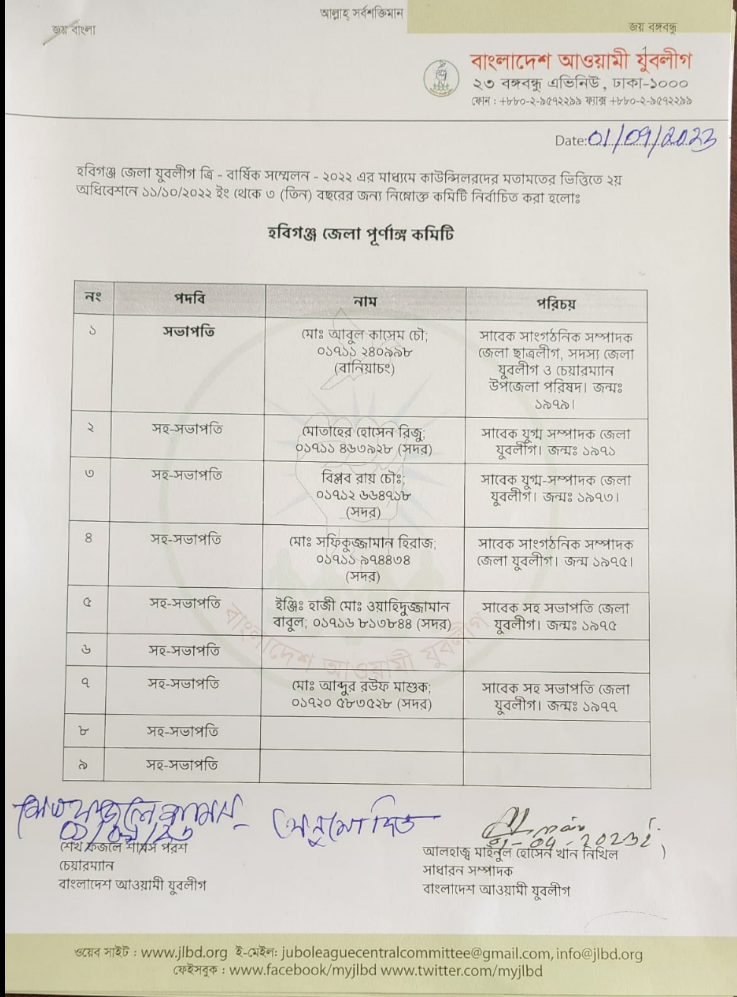 আল্লাহ্ সর্বশক্তিমান
জয় বাংলা
জয় বঙ্গবন্ধু
বাংলাদেশ আওয়ামী যুবলীগ
২৩ বঙ্গবন্ধু এভিনিউ, ঢাকা-১০০০
ফোন : +৮৮০-২-৯৫৭২২৯৯ ফ্যাক্স +৮৮০-২-৯৫৭২২৯৯
Date: 01/09/2023
হবিগঞ্জ জেলা যুবলীগ ত্রি - বার্ষিক সম্মেলন - ২০২২ এর মাধ্যমে কাউন্সিলরদের মতামতের ভিত্তিতে ২য়
অধিবেশনে ১১/১০/২০২২ ইং থেকে ৩ (তিন) বছরের জন্য নিম্নোক্ত কমিটি নির্বাচিত করা হলোঃ
হবিগঞ্জ জেলা পূর্ণাঙ্গ কমিটি
নং পদবি নাম পরিচয়
১ সভাপতি মোঃ আবুল কাসেম চৌ; সাবেক সাংগঠনিক সম্পাদক
০১৭১১ ২৪০৯৯৮ জেলা ছাত্রলীগ, সদস্য জেলা
(বানিয়াচং) যুবলীগ ও চেয়ারম্যান
উপজেলা পরিষদ। জন্মঃ
১৯৭৯।
২ সহ-সভাপতি মোতাহের হোসেন রিজু; সাবেক যুগ্ম সম্পাদক জেলা
০১৭১১ ৪৬৩৯২৮ (সদর) যুবলীগ। জন্মঃ ১৯৭১
৩ সহ-সভাপতি বিপ্লব রায় চৌঃ; সাবেক যুগ্ম-সম্পাদক জেলা
০১৭১২ ৬৬৪৭১৮ যুবলীগ। জন্মঃ ১৯৭৩।
(সদর)
৪ সহ-সভাপতি মোঃ সফিকুজ্জামান হিরাজ; সাবেক সাংগঠনিক সম্পাদক
০১৭১১ ৯৭৪৪৩৪ জেলা যুবলীগ। জন্ম ১৯৭৫।
(সদর)
৫ সহ-সভাপতি ইঞ্জিঃ হাজী মোঃ ওয়াহিদুজ্জামান সাবেক সহ সভাপতি জেলা
বাবুল; ০১৭১৬ ৮১৩৮৪৪ (সদর) যুবলীগ। জন্মঃ ১৯৭৫
৬ সহ-সভাপতি
৭ সহ-সভাপতি মোঃ আব্দুর রউফ মাশুক; সাবেক সহ সভাপতি জেলা
০১৭২০ ৫৮৩৫২৮ (সদর) যুবলীগ। জন্মঃ ১৯৭৭
৮ সহ-সভাপতি
৯ সহ-সভাপতি
বাংলাদেশ আওয়ামী যুবলীগ
অনুমোদিত
শেখ ফজলে শামস্ পরশ
চেয়ারম্যান
বাংলাদেশ আওয়ামী যুবলীগ
আলহাজ্ব মাইনুল হোসেন খান নিখিল
সাধারন সম্পাদক
বাংলাদেশ আওয়ামী যুবলীগ
ওয়েব সাইট : www.jlbd.org ই-মেইল: juboleaguecentralcommittee@gmail.com, info@jlbd.org
ফেইসবুক : www.facebook/myjlbd www.twitter.com/myjlbd